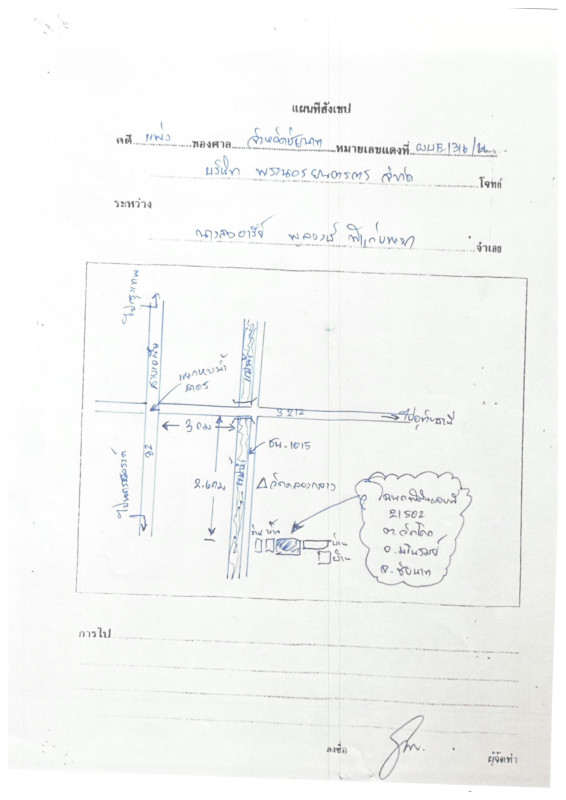 แผนที่สังเขป
คดี แพ่ง ของศาล จังหวัดชัยนาท หมายเลขแดงที่ ผบE.1316/
บริษัท พระนครยนตรการ จำกัด โจทก์
ระหว่าง
นางสาวอารีย์ จำเลย
ไปกรุงเทพ
สายเอเซีย
แยกหางน้ำสาคร
แม่น้ำ
3212
ไปอุทัยธานี
3 กม
ชน.1015
ไปนครสวรรค์
32
2.6 กม
แม่น้ำ
วัดคลองกลาง
บ้าน
บ้าน
บ้าน
โฉนดที่ดินเลขที่
21502
ต.วัดโคก
อ.มโนรมย์
จ.ชัยนาท
การไป
ลงชื่อ
ผู้จัดทำ